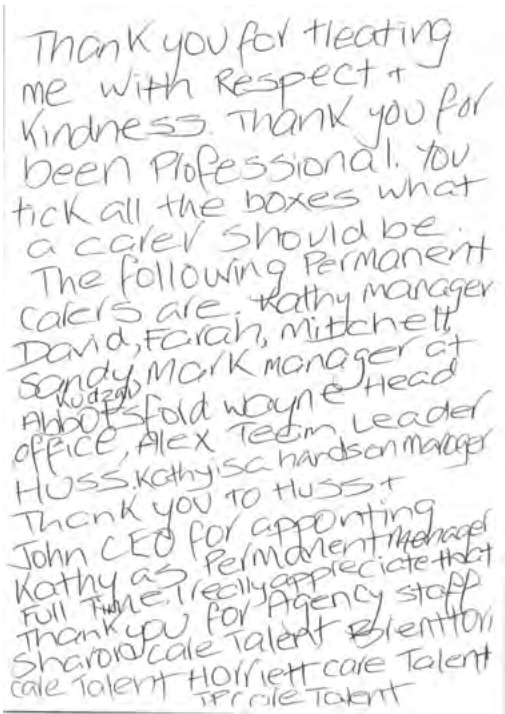 Thank you for treating
me with Respect +
Kindness. Thank you for
been Professional. You
tick all the boxes what
a carer should be.
The following Permanent
carers are. Kathy manager
David, Farah, Mitchell,
Sandy, Mark manager at
Kudzai
Abbotsford Wayne Head
office, Alex Team Leader
Huss. Kathy is a hands on manager
Thank you to Huss +
John CEO for apponting
Kathy as Permanent manager
Full Time. I really appreciate that
Thank you for Agency staff
Sharon care Talent
care Talent Harriett care Talent
care Talent